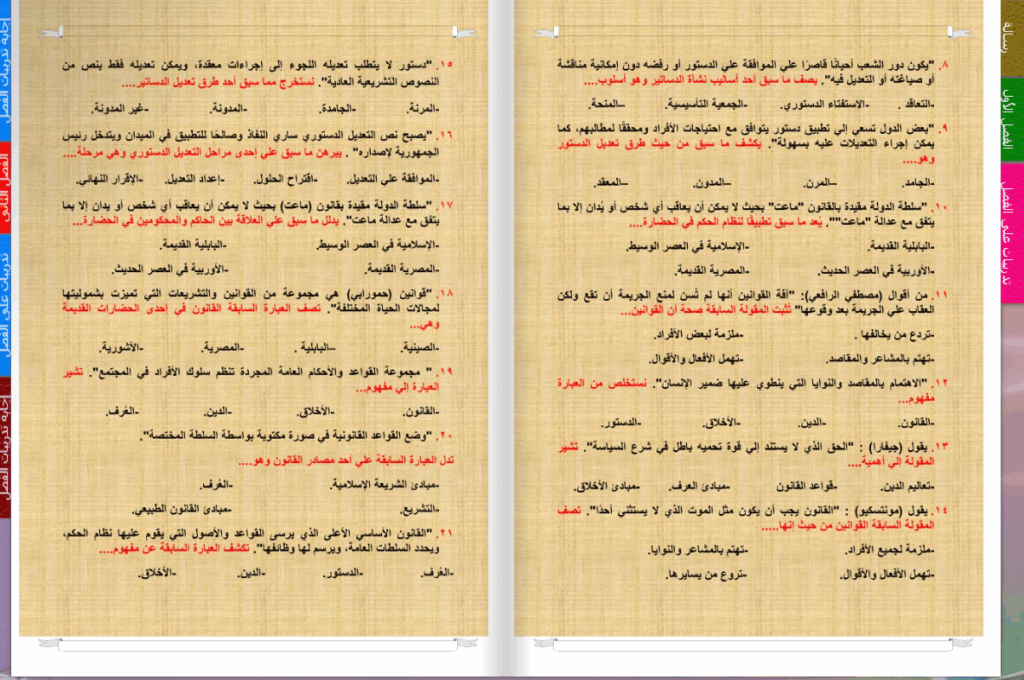 ٨. "يكون دور الشعب أحيانًا قاصرًا علي الموافقة علي الدستور أو رفضه دون إمكانية مناقشة
أو صياغته أو التعديل فيه". يصف ما سبق أحد أساليب نشأة الدساتير وهو أسلوب....
-التعاقد . -الاستفتاء الدستوري. -الجمعية التأسيسية. –المنحة.
٩. "بعض الدول تسعي إلي تطبيق دستور يتوافق مع احتياجات الأفراد ومحققًا لمطالبهم، كما
يمكن إجراء التعديلات عليه بسهولة". يكشف ما سبق من حيث طرق تعديل الدستور
وهو....
-الجامد. –المرن. –المدون. –المعقد.
١٠. "سلطة الدولة مقيدة بالقانون "ماعت" بحيث لا يمكن أن يعاقب أي شخص أو يُدان إلا بما
يتفق مع عدالة "ماعت"". يُعد ما سبق تطبيقًا لنظام الحكم في الحضارة....
-البابلية القديمة. -الإسلامية في العصر الوسيط.
-الأوربية في العصر الحديث. -المصرية القديمة.
١١. من أقوال (مصطفي الرافعي): "آفة القوانين أنها لم تُسن لمنع الجريمة أن تقع ولكن
العقاب علي الجريمة بعد وقوعها" تُثبت المقولة السابقة صحة أن القوانين...
-تردع من يخالفها . -ملزمة لبعض الأفراد.
-تهتم بالمشاعر والمقاصد. -تهمل الأفعال والأقوال.
١٢. "الاهتمام بالمقاصد والنوايا التي ينطوي عليها ضمير الإنسان". نستخلص من العبارة
مفهوم...
-القانون. -الدين. -الأخلاق. -الدستور.
١٣. يقول (جيفارا) : "الحق الذي لا يستند إلي قوة تحميه باطل في شرع السياسة". تشير
المقولة إلي أهمية....
-تعاليم الدين. -قواعد القانون -مبادئ العرف. -مبادئ الأخلاق.
١٤. يقول (مونتسكيو) : "القانون يجب أن يكون مثل الموت الذي لا يستثني أحدًا". تصف
المقولة السابقة القوانين من حيث إنها.....
-ملزمة لجميع الأفراد. -تهتم بالمشاعر والنوايا.
-تهمل الأفعال والأقوال. -تروع من يسايرها.
١٥. "دستور لا يتطلب تعديله اللجوء إلى إجراءات معقدة، ويمكن تعديله فقط بنص من
النصوص التشريعية العادية". نستخرج مما سبق أحد طرق تعديل الدساتير....
-المرنة. -الجامدة. -المدونة. -غير المدونة.
١٦. "يصبح نص التعديل الدستوري ساري النفاذ وصالحًا للتطبيق في الميدان ويتدخل رئيس
الجمهورية لإصداره" . يبرهن ما سبق علي إحدى مراحل التعديل الدستوري وهي مرحلة....
-الموافقة علي التعديل. -اقتراح الحلول. -إعداد التعديل. -الإقرار النهائي.
١٧. "سلطة الدولة مقيدة بقانون (ماعت) بحيث لا يمكن أن يعاقب أي شخص أو يدان إلا بما
يتفق مع عدالة ماعت". يدلل ما سبق علي العلاقة بين الحاكم والمحكومين في الحضارة...
-الإسلامية في العصر الوسيط. -البابلية القديمة.
-المصرية القديمة. -الأوربية في العصر الحديث.
١٨. "قوانين (حمورابي) هي مجموعة من القوانين والتشريعات التي تميزت بشموليتها
لمجالات الحياة المختلفة". تصف العبارة السابقة القانون في إحدى الحضارات القديمة
وهي...
-الصينية. –البابلية . -المصرية. -الأشورية.
١٩. " مجموعة القواعد والأحكام العامة المجردة تنظم سلوك الأفراد في المجتمع". تشير
العبارة إلي مفهوم...
-القانون. -الأخلاق. -الدين. -العُرف.
٢٠. "وضع القواعد القانونية في صورة مكتوبة بواسطة السلطة المختصة".
تدل العبارة السابقة علي أحد مصادر القانون وهو....
-مبادئ الشريعة الإسلامية. -العُرف.
-التشريع. -مبادئ القانون الطبيعي.
٢١. "القانون الأساسي الأعلى الذي يرسى القواعد والأصول التي يقوم عليها نظام الحكم،
ويحدد السلطات العامة، ويرسم لها وظائفها". تكشف العبارة السابقة عن مفهوم....
-العُرف. -الدستور. -الدين. -الأخلاق.
رسالة
الفصل الأول
تدريبات علي الفصل
إجابة تدريبات الفصل
الفصل الثاني
تدريبات علي الفصل
إجابة تدريبات الفصل